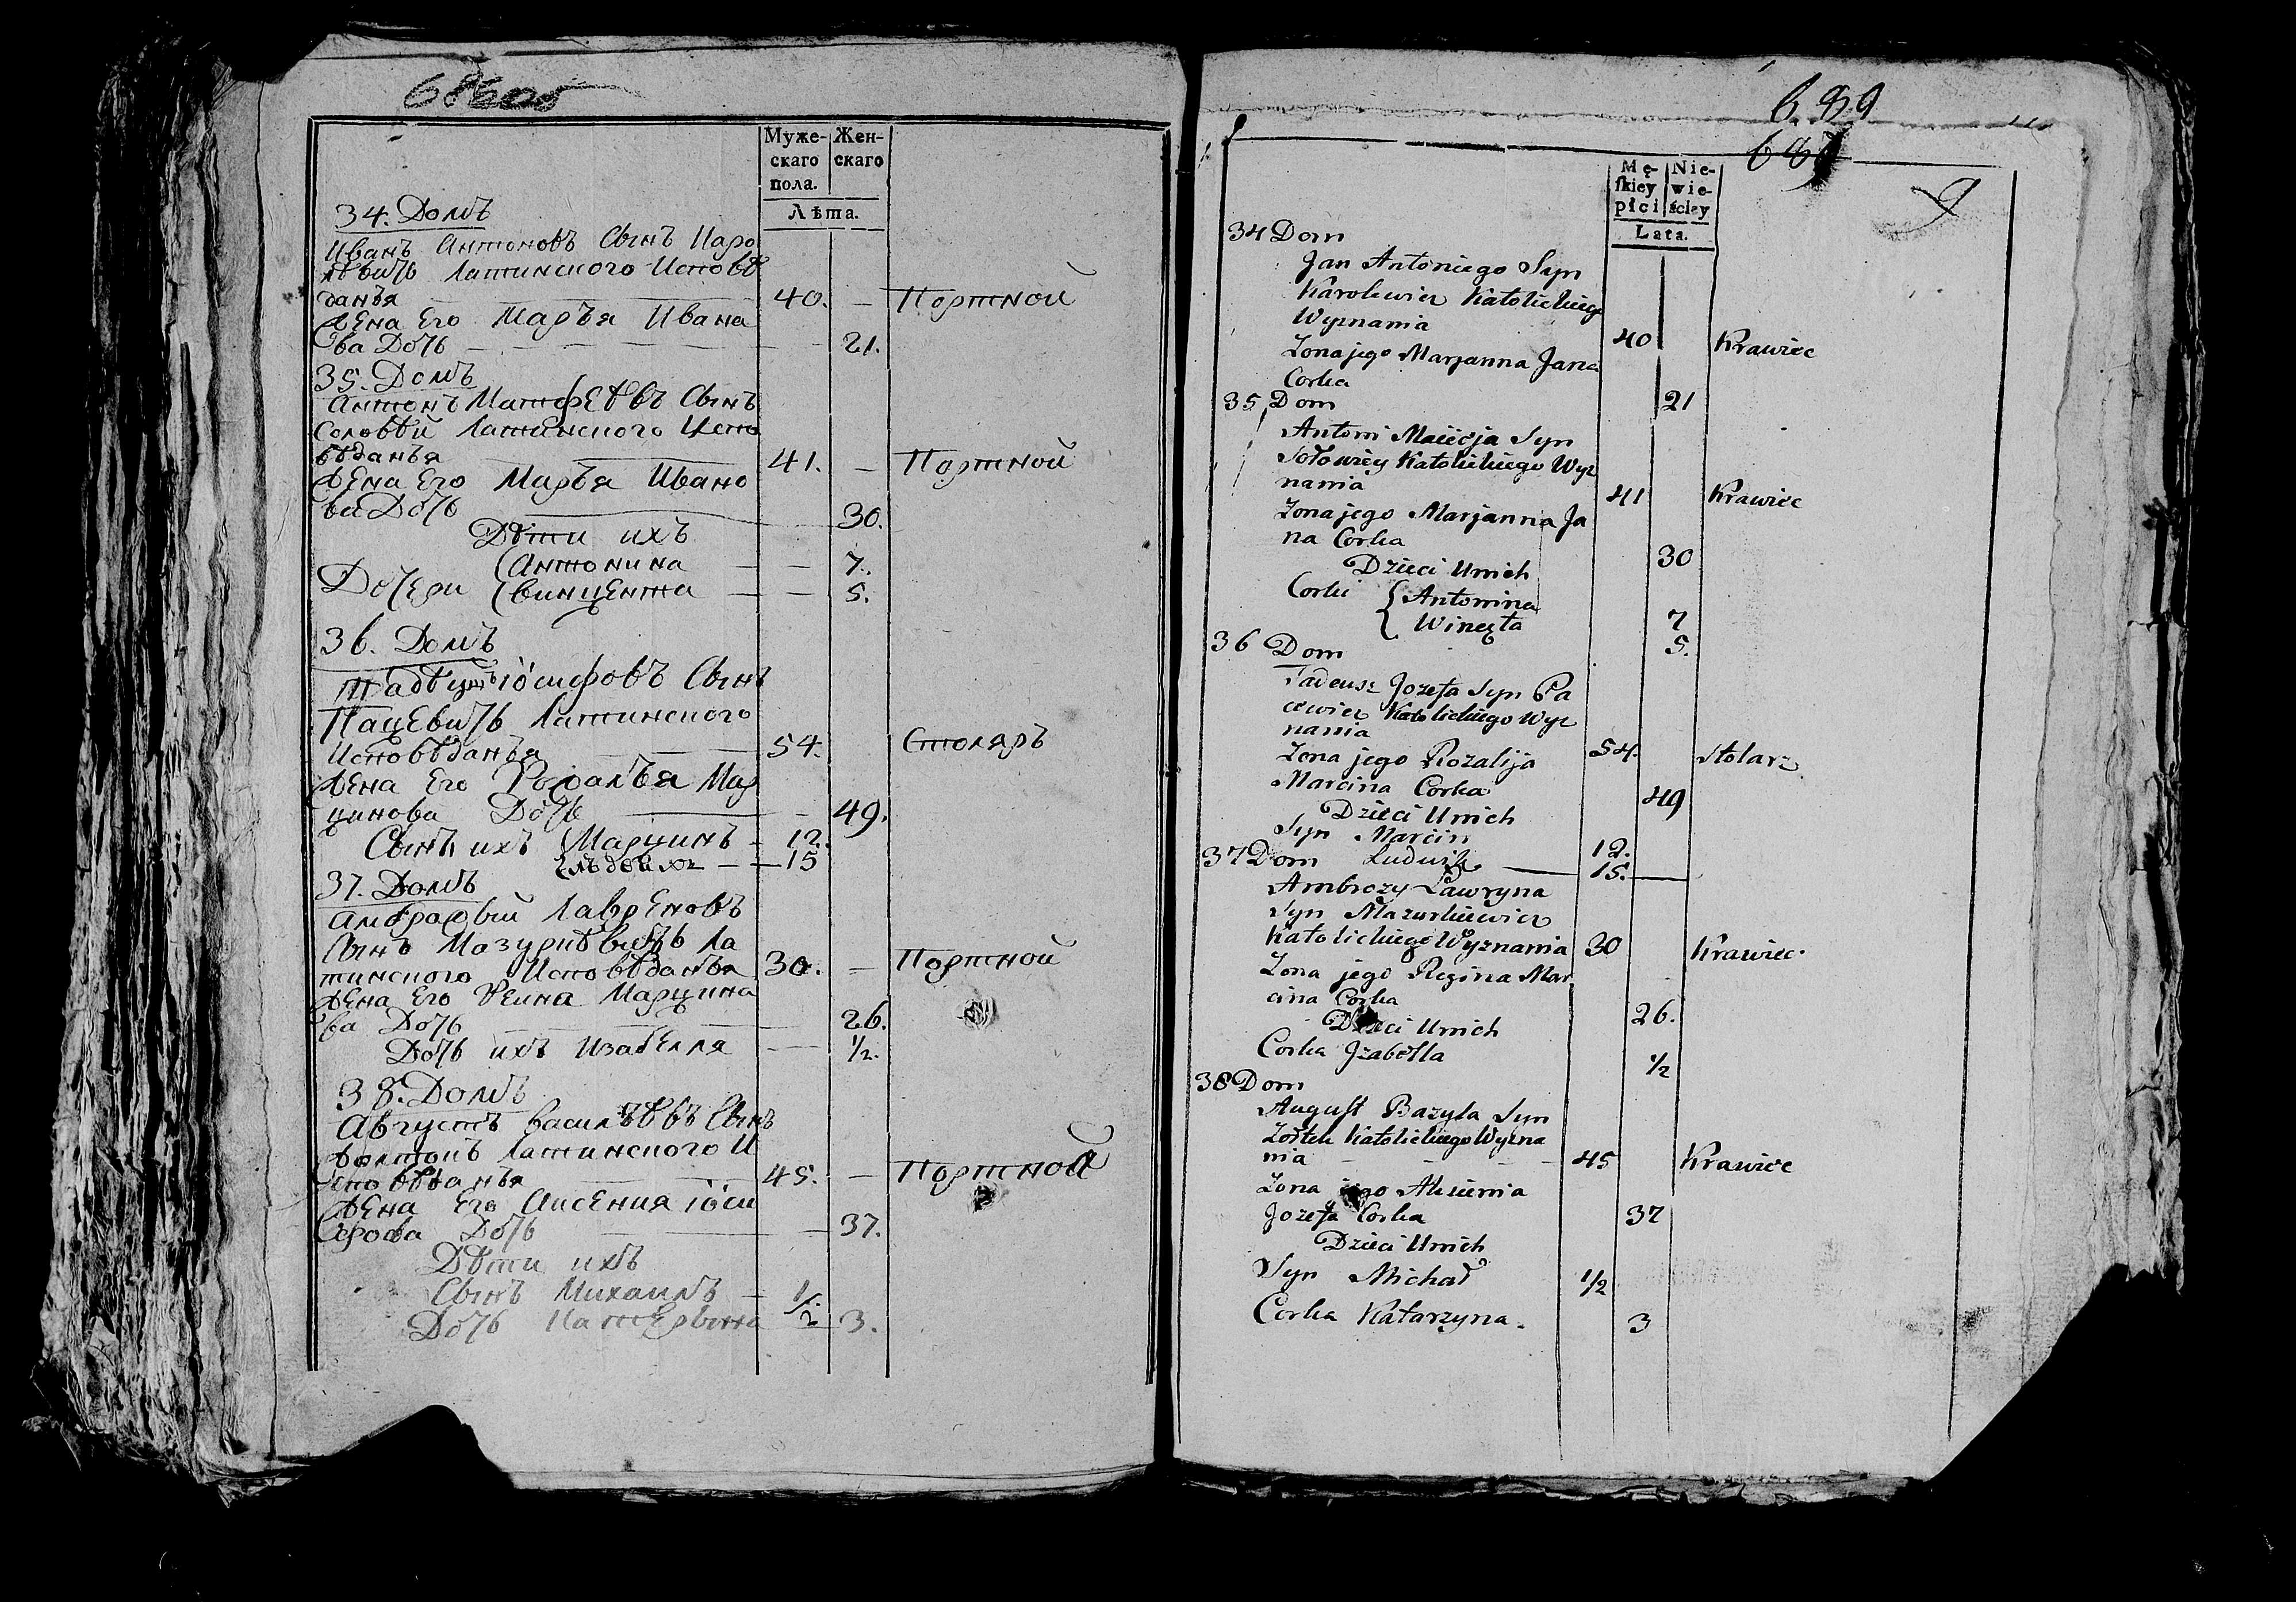 686об
Муже-
скаго
пола.
Жен-
скаго
Лѣта.
34. Домъ
Иванъ Антоновъ Сынъ Каро
лѣвичь Латинского Исповѣ
данья 40. — Портной
Жена Его Марья Ивана
ва Дочь 21.
35. Домъ
Антонъ Матфеѣвъ Сынъ
Соловѣй Латинского Испо
вѣданья 41. — Портной
Жена Его Марья Ивано
ва Дочь 30.
Дѣти ихъ
Дочери (Антонина — — 7.
(Винцента — — 5.
36. Домъ
Тадѣушъ Іосифовъ Сынъ
Пацевичь Латинского
Исповѣданья 54. Столяръ
Жена Его Розалья Мар
цинова Дочь 49.
Сынъ ихъ (Марцинъ — 12.
— 15
37. Домъ
Амброзый Лавреновъ
Сынъ Мазуркѣвичь Ла
тинского Исповѣданья 30. — Портной
Жена Его Рeина Марцина
ва Дочь 26.
Дочь ихъ Изабелля — 1/2.
38. Домъ
Августъ Васильѣвъ Сынъ
Жолтокъ Латинского И
сповѣданья 45. — Портной
Жена Его Аксения Іоси
фова Дочь 37.
Дѣти ихъ
Сынъ Михаилъ — 1/2
Дочь Катерына — 3.
689
687
Mę-
skiey
płci
Nie-
wie-
ściey
Lata.
34 Dom
Jan Antoniego Syn
Karolewicz Katolickiego
Wyznania 40 Krawiec
Zona jego Marjanna Jana
Corka 21
35 Dom
Antoni Macieja Syn
Sołowiey Katolickiego Wyz
nania 41 Krawiec
Zona jego Marjanna Ja
na Corka 30
Dzieci Unich
Corki { Antonina 7
{ Wincęta 5.
36 Dom
Tadeusz Jozefa Syn Pa
cewicz Katolickiego Wyz
nania 54. Stolarz
Zona jego Rozalija
Marcina Corka 49
Dzieci Unich
Syn Marcin 12.
37 Dom Ludwik — 15. —
Ambrozy Ławryna
Syn Mazurkiewicz
Katolickiego Wyznania 30 Krawiec.
Zona jego Regina Mar
cina Corka 26.
Dzieci Unich
Corka Jzabella 1/2
38 Dom
August Bazyla Syn
Zołtek Katolickiego Wyzna
nia — — — 45 Krawiec
Zona jego Aksienia
Jozefa Corka 37
Dzieci Unich
Syn Michał 1/2
Corka Katarzyna. 3